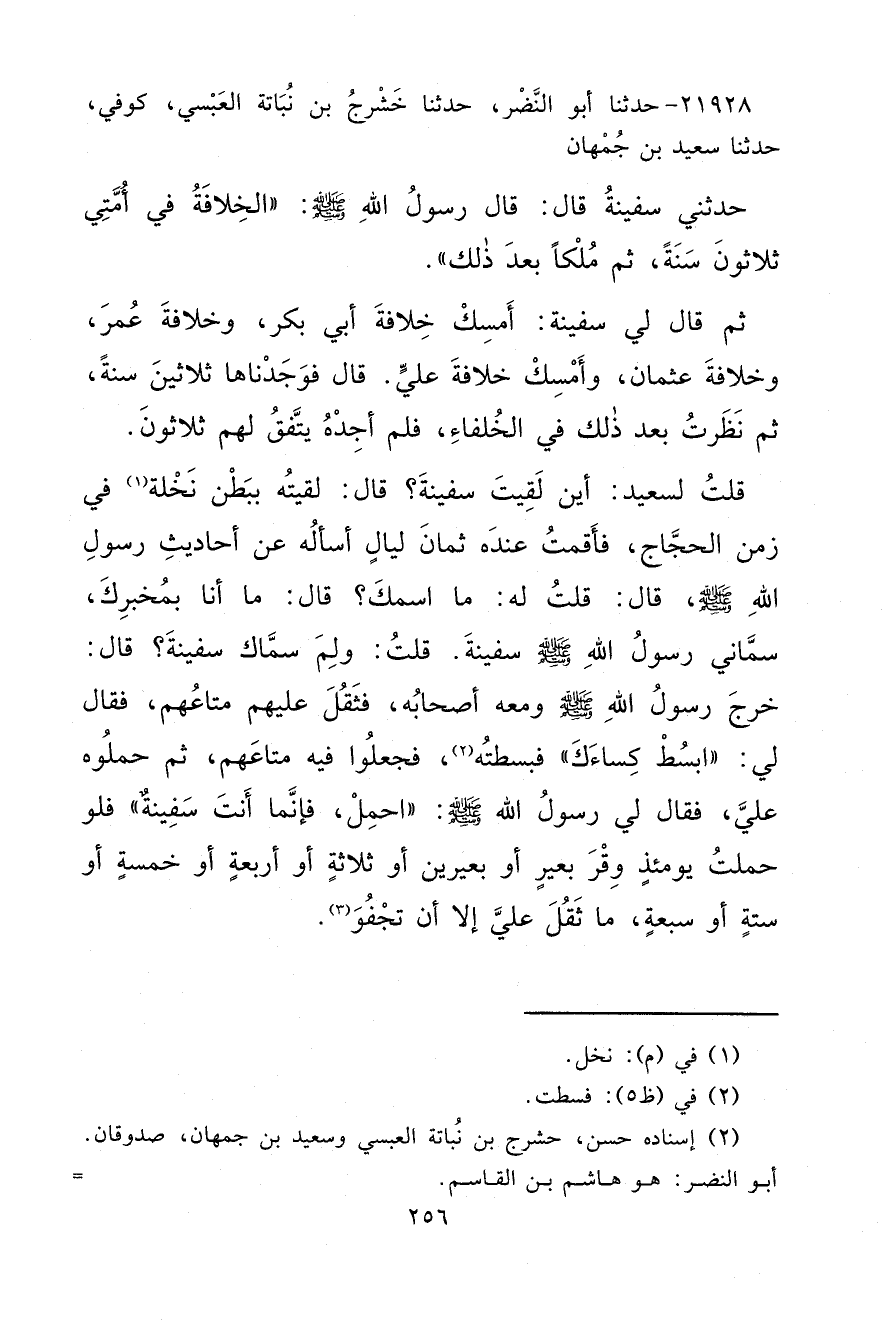 ٢١٩٢٨- حدثنا أبو النَّضْر، حدثنا خَشْرجُ بن نُبَاتة العَبْسي، كوفي،
حدثنا سعيد بن جُمْهان
حدثني سفينةُ قال: قال رسولُ اللهِ ﷺ: «الخِلافَةُ في أُمَّتِي
ثلاثونَ سَنَةً، ثم مُلْكاً بعدَ ذٰلك».
ثم قال لي سفينة: أَمسِكْ خِلافةَ أبي بكر، وخلافةَ عُمرَ،
وخلافةَ عثمان، وأَمْسِكْ خلافةَ عليٍّ. قال فوَجَدْناها ثلاثينَ سنةً،
ثم نَظَرتُ بعد ذٰلك في الخُلفاءِ، فلم أجِدْهُ يتَّفقُ لهم ثلاثونَ.
قلتُ لسعيد: أين لَقِيتَ سفينةَ؟ قال: لقيتُه ببَطْن نَخْلة(١) في
زمن الحجَّاج، فأَقمتُ عندَه ثمانَ ليالٍ أسألُه عن أحاديثِ رسولِ
اللهِ ﷺ، قال: قلتُ له: ما اسمكَ؟ قال: ما أنا بمُخبرِكَ،
سمَّاني رسولُ اللهِ ﷺ سفينةَ. قلتُ: ولِمَ سمَّاك سفينةَ؟ قال:
خرجَ رسولُ اللهِ ﷺ ومعه أصحابُه، فثَقُلَ عليهم متاعُهم، فقال
لي: «ابسُطْ كِساءَكَ» فبسطتُه(٢)، فجعلُوا فيه متاعَهم، ثم حملُوه
عليَّ، فقال لي رسولُ الله ﷺ: «احمِلْ، فإنَّما أَنتَ سَفِينةٌ» فلو
حملتُ يومئذٍ وِقْرَ بعيرٍ أو بعيرين أو ثلاثةٍ أو أربعةٍ أو خمسةٍ أو
ستةٍ أو سبعةٍ، ما ثَقُلَ عليَّ إلا أن تجْفُوَ(٣).
(١) في (م): نخل.
(٢) في (ظ٥): فسطت.
(٢) إسناده حسن، حشرج بن نُباتة العبسي وسعيد بن جمهان، صدوقان.
أبو النضر: هو هاشم بن القاسم. =
٢٥٦